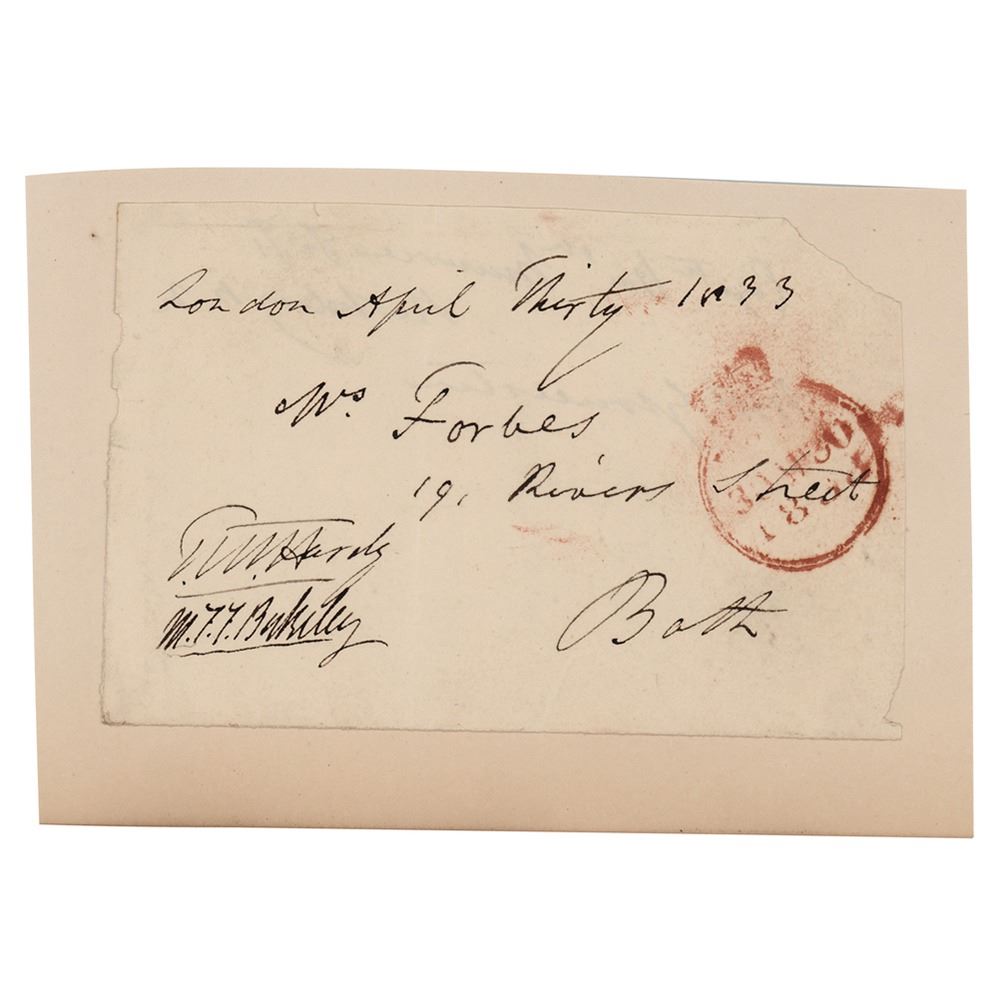 London April Thirty 1833
Mrs Forbes
19, Rivers Street
T. M. Hardy
M. F. F. Berkeley
Bath
30
183